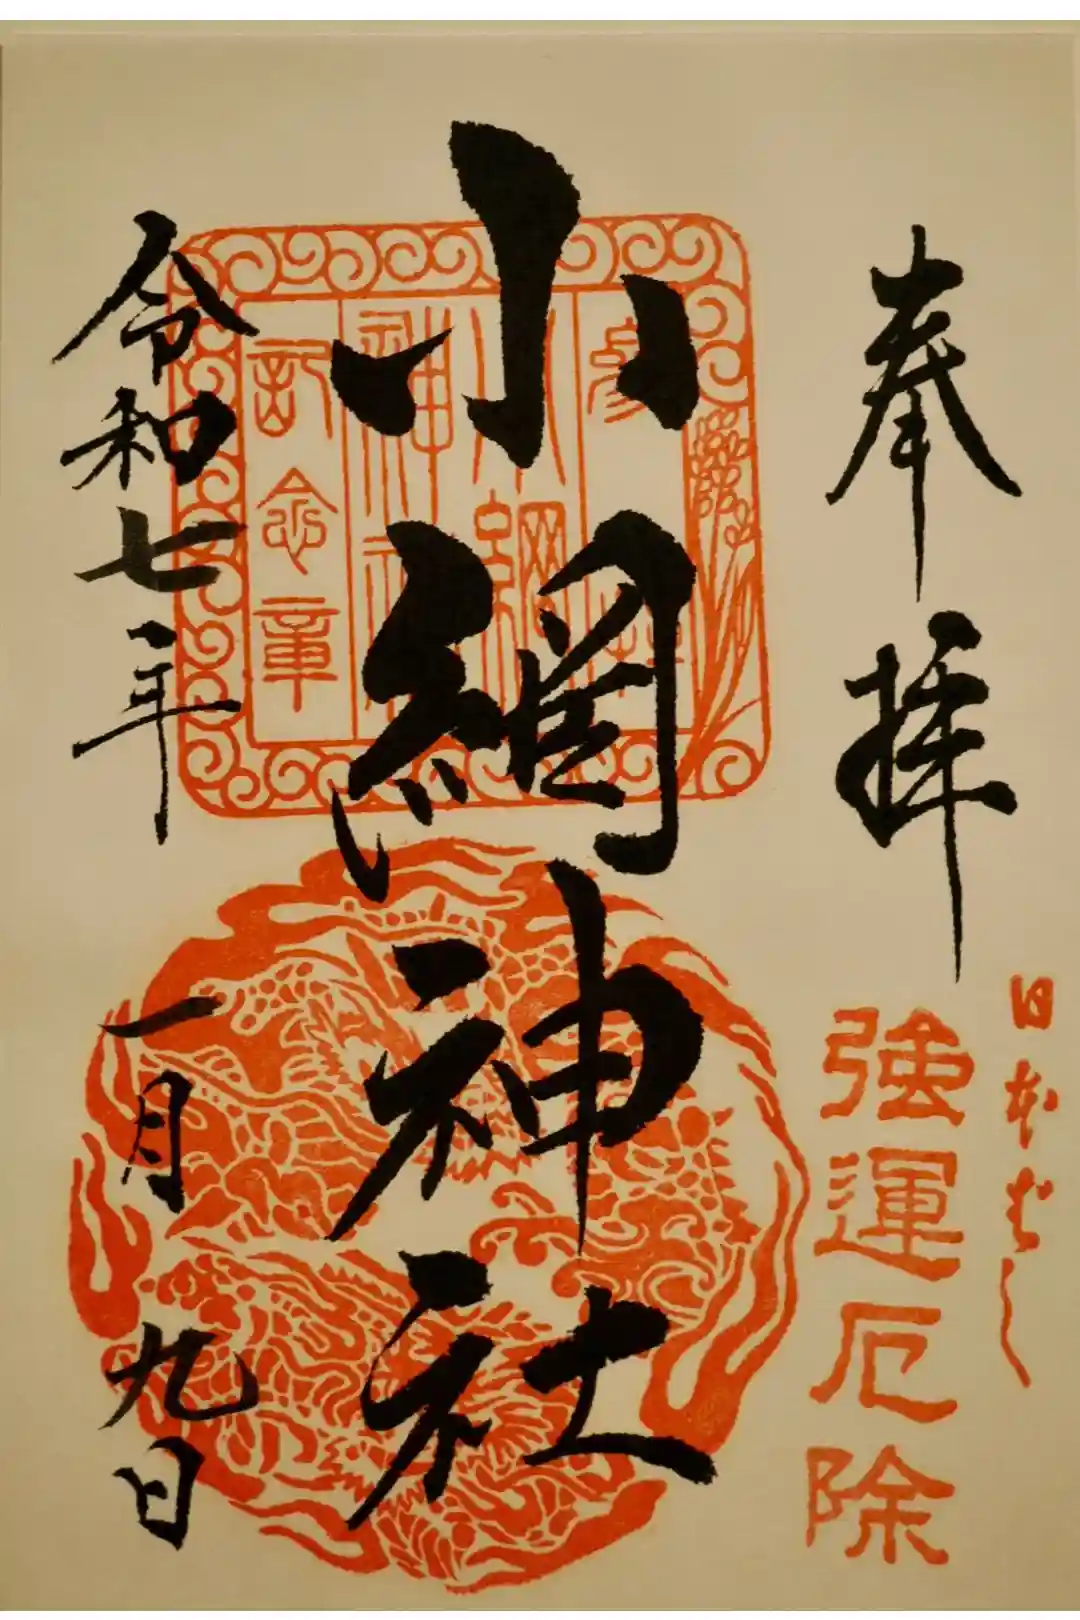 奉拝
日本はし
強運厄除
小網神社
小網
神社
記念章
令和七年一月九日